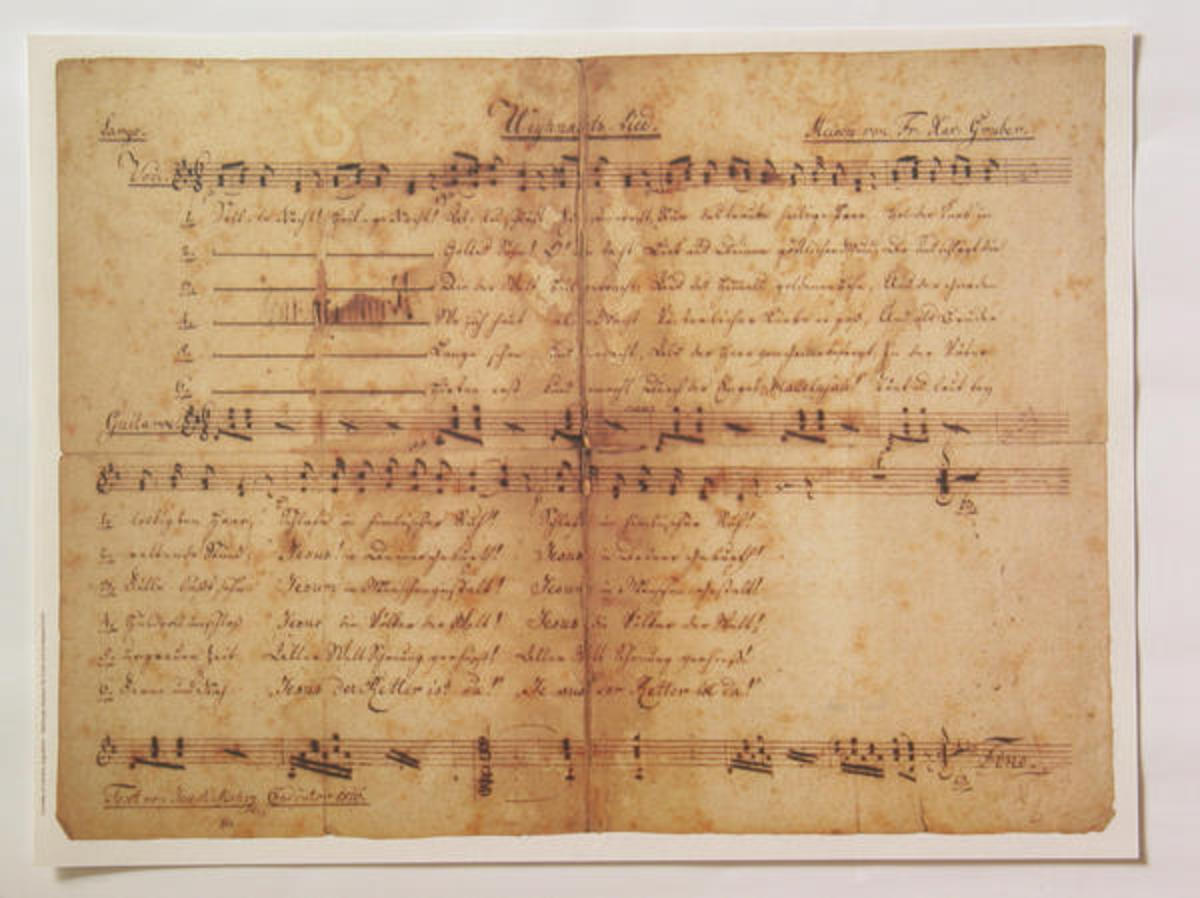 Largo. Weyhnachts-Lied. Melodie von Fr. Xav. Gruber.
Voce.
1. Stille Nacht! Heilige Nacht! Alles schläft
2. Gottes Sohn! O! lacht
3. Die der Welt Heil gebracht, Aus des Himmels goldenen Höh'n,
4. Wo sich heut alle Macht Väterlicher Liebe ergoß, Und als Bruder
5. Lange schon Uns bedacht, Als der Herr vom Grimme befreyt, In der Väter
6. Hirten erst kund gemacht Durch der Engel Hallelujah!
Guitarre.
1. lockigten Haar, Schlafe in himmlischer Ruh! Schlafe in himmlischer Ruh!
2. rettende Stund, Jesus! in deiner Geburt! Jesus in deiner Geburt!
3. Fülle läßt sehn Jesum in Menschengestalt! Jesum in Menschengestalt!
4. huldvoll umschloß Jesus die Völker der Welt! Jesus die Völker der Welt!
5. urgrauer Zeit Aller Welt Schonung verhieß! Aller Welt Schonung verhieß!
6. Ferne und Nah Jesus der Retter ist da! Jesus der Retter ist da!
Fine.
Text von Joseph Mohr Coadjutor 1816.